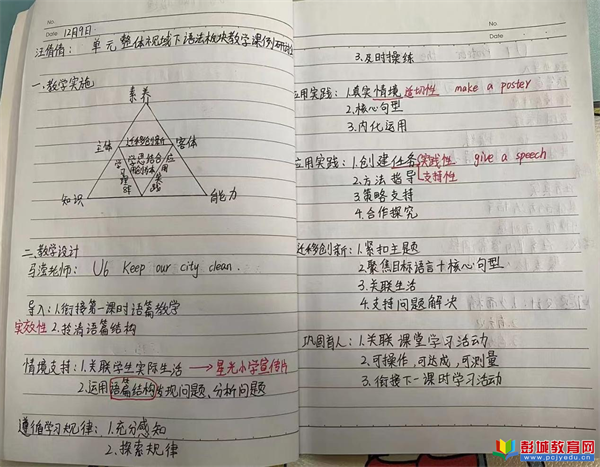 No.
Date 12月9日
汪倩倩: 单元整体视域下语法板块教学课例研讨
一、教学实施
素养
主体 迁移创新 客体
学习理解
学思结合
应用实践
知识 能力
二、教学设计
马滢老师: U6 Keep our city clean.
导入: 1.衔接第一课时语篇教学
实效性 2.找清语篇结构
情境支持: 1.关联学生实际生活 → 星光小学宣传片
2.运用语篇结构发现问题、分析问题
遵循学习规律: 1.充分感知
2.探索规律
No.
Date
3.及时操练
应用实践: 1.真实情境 迫切性 make a poster
2.核心句型
3.内化运用
应用实践: 1.创建任务 实践性 give a speech
2.方法指导 支持性
3.策略支持
4.合作探究
迁移创新: 1.紧扣主题
2.聚焦目标语言+核心句型
3.关联生活
4.支持问题解决
巩固育人: 1.关联课堂学习活动
2.可操作,可达成,可测量
3.衔接下一课时学习活动
彭城教育网
www.pcjyedu.cn